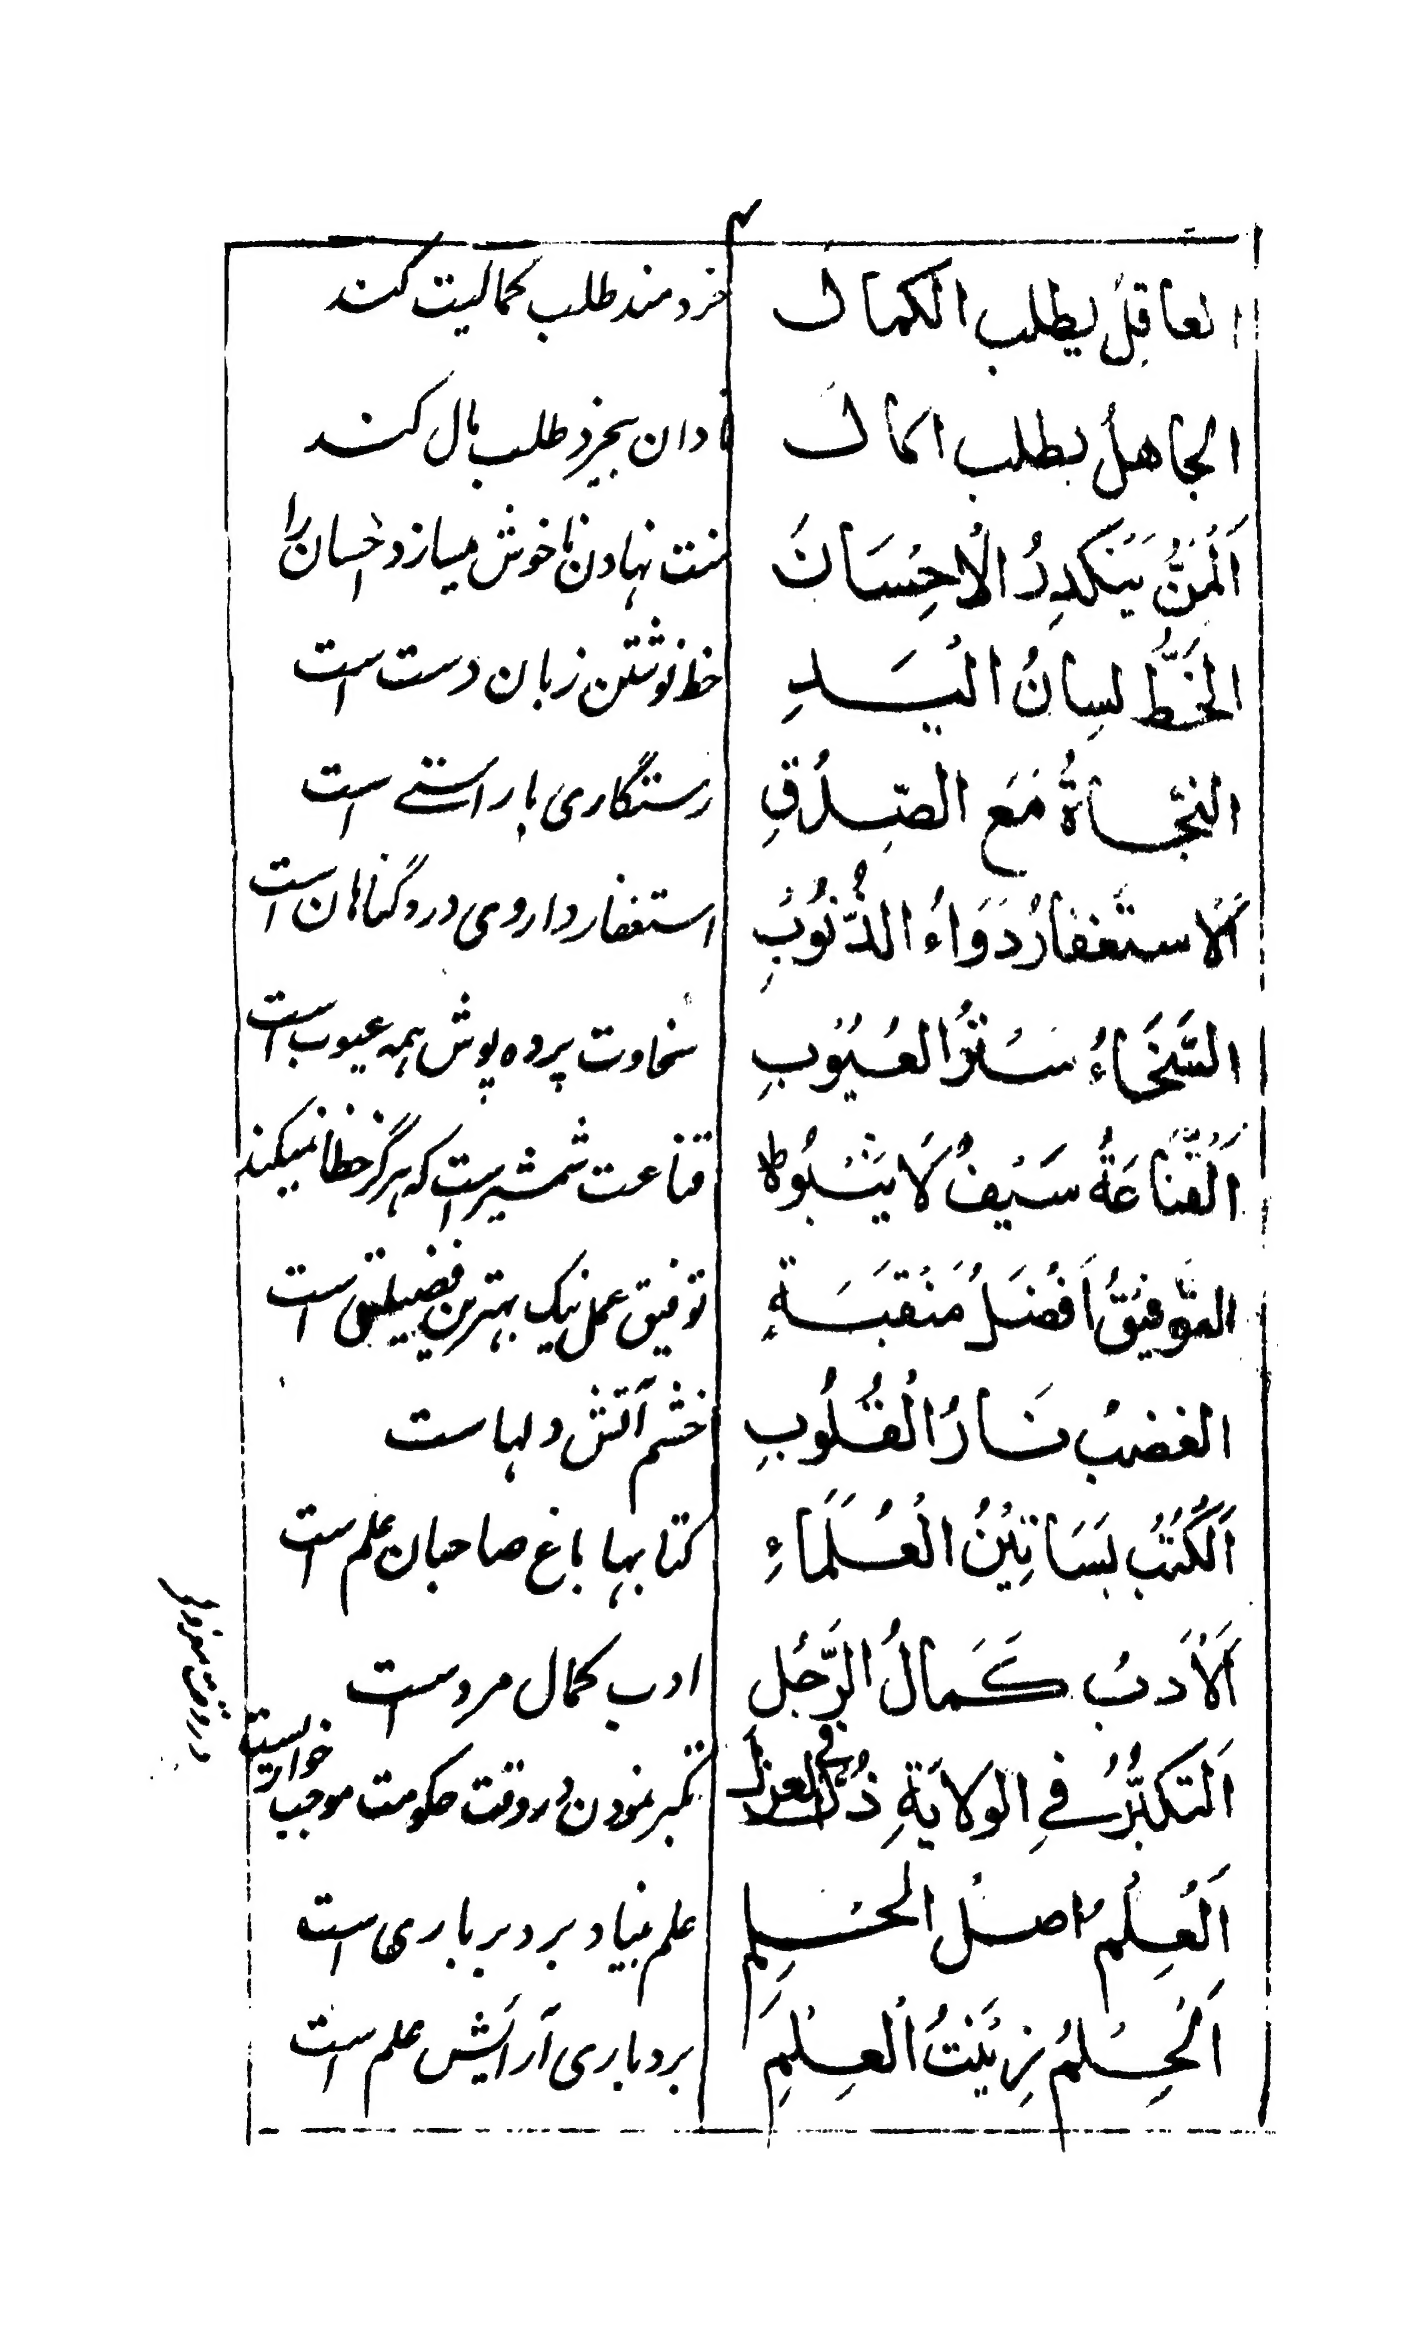 ۴
العاقِلُ يطلب الكمال خردمند طلب کمالیت کند
الجاهلُ يطلب المال نادان بیخرد طلب مال کند
اَلْمَنُّ يَنكدِرُ الْاحِسَانَ منت نهادن ناخوش میسازد احسان را
الخَطُّ لسِانُ اليَدِ خط نوشتن زبان دست است
النجّاةُ مَع الصِّدْقِ رستگاری با راستے است
اَلْاستَغفارُ دَوَاءُ الذُّنوُبِ استغفار داروی درد گناهان است
السَّخَاءُ سَتْرُ العُيُوبِ سخاوت پرده پوش همه عیوب است
اَلْقَنَاعَةُ سَيْفٌ لَا يَنْبُوْا قناعت شمشیر است که هرگز خطا نمیکند
التَّوفيقُ اَفْضَلُ مَنْقَبَةٍ توفیق عمل نیک بهترین فضیلتی است
الغضبُ نَارُ الْقُلُوبِ خشم آتش دلهاست
اَلكُتُبُ بَسَاتِيْنُ الْعُلَمَاءِ کتابها باغ صاحبان علم است
اَلْاَدبُ كَمالُ الرَّجُلِ ادب کمال مرد است
اَلتَكبُّرُ فِي الولايَةِ ذُلٌّ فی العزل تکبر نمودن در وقت حکومت موجب خواریست
در وقت معزولی
اَلْعِلْمُ اصلُ الحلِمِ علم بنیاد بردباری است
اَلْحِلمُ زِيْنَتُ الْعِلْمِ بردباری آرایش علم است